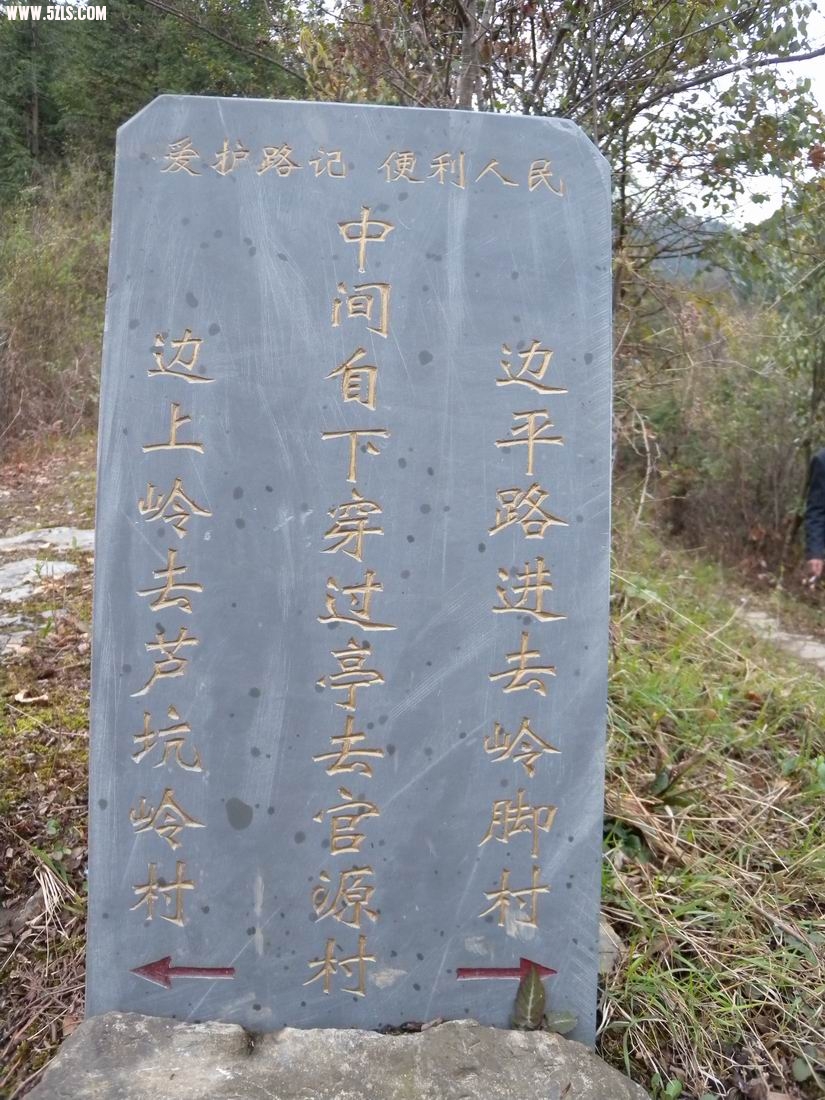 WWW.5ZLS.COM
爱护路记 便利人民
边平路进去岭脚村
中间自下穿过亭去官源村
边上岭去芦坑岭村